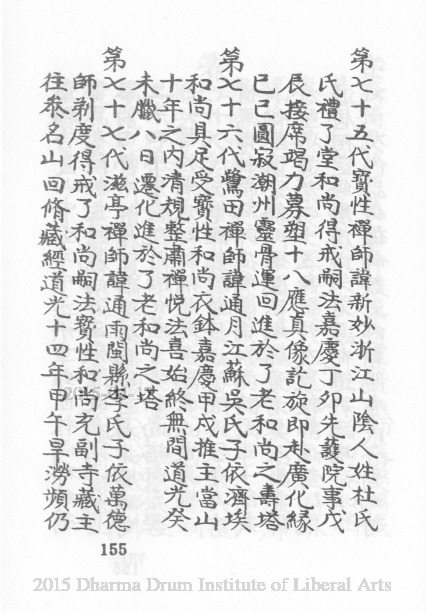 第七十五代寶性禪師諱新妙浙江山陰人姓杜氏
氏禮了堂和尚得戒嗣法嘉慶丁夘先護院事戊
辰接席竭力募塑十八應真像訖旋即赴廣化緣
己巳圓寂潮州靈骨運回進於了老和尚之壽塔
第七十六代鷺田禪師諱通月江蘇吳氏子依濟埃
和尚具足受寶性和尚衣鉢嘉慶甲戌推主當山
十年之內清規整肅禪悅法喜始終無間道光癸
未臘八日遷化進於了老和尚之塔
第七十七代滋亭禪師諱通雨閩縣李氏子依萬德
師剃度得戒了和尚嗣法寶性和尚充副寺藏主
往叅名山回脩藏經道光十四年甲午旱澇頻仍
155
2015 Dharma Drum Institute of Liberal Arts